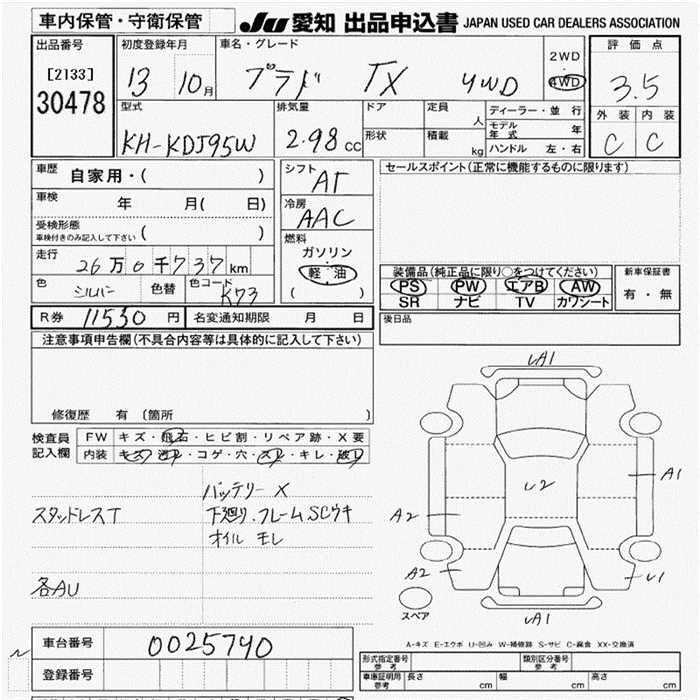 車内保管・守衛保管
JU 愛知 出品申込書 JAPAN USED CAR DEALERS ASSOCIATION
出品番号
[2133]
30478
初度登録年月
13 10月
車名・グレード
プラド TX 4WD
2WD
・
4WD
評価点
3.5
外装 内装
C C
型式
KH-KDJ95W
排気量
2.98 cc
ドア
形状
定員
人
積載
kg
ディーラー・並行
モデル年式 年
ハンドル 左・右
車歴 自家用・( )
車検 年 月( 日)
受検形態
車検付きのみ記入して下さい ( )
走行 26万0千737km
色 シルバー 色替 色コード K73
シフト AT
冷房 AAC
燃料
ガソリン
軽油
( )
セールスポイント(正常に機能するものに限ります)
装備品(純正品に限り○をつけてください)
PS PW エアB AW
SR ナビ TV カワシート
新車保証書
有・無
R券 11530 円 名変通知期限 月 日
後日品
注意事項申告欄(不具合内容等は具体的に記入して下さい)
修復歴 有 〔箇所 〕
検査員記入欄
FW キズ・飛石・ヒビ割・リペア跡・X要
内装 キズ・汚レ・コゲ・穴・スレ・キレ・破レ
バッテリー X
スタッドレスT
下廻り.フレームSCウキ
オイル モレ
各AU
UA1
A1
U2
A2
A2
U1
UA1
スペア
A-キズ E-エクボ U-凹み W-補修跡 S-サビ C-腐食 XX-交換済
車台番号 0025740
登録番号
形式指定番号 参考
類別区分番号 参考
車庫証明記入欄 参考 長さ cm 幅 cm 高さ cm